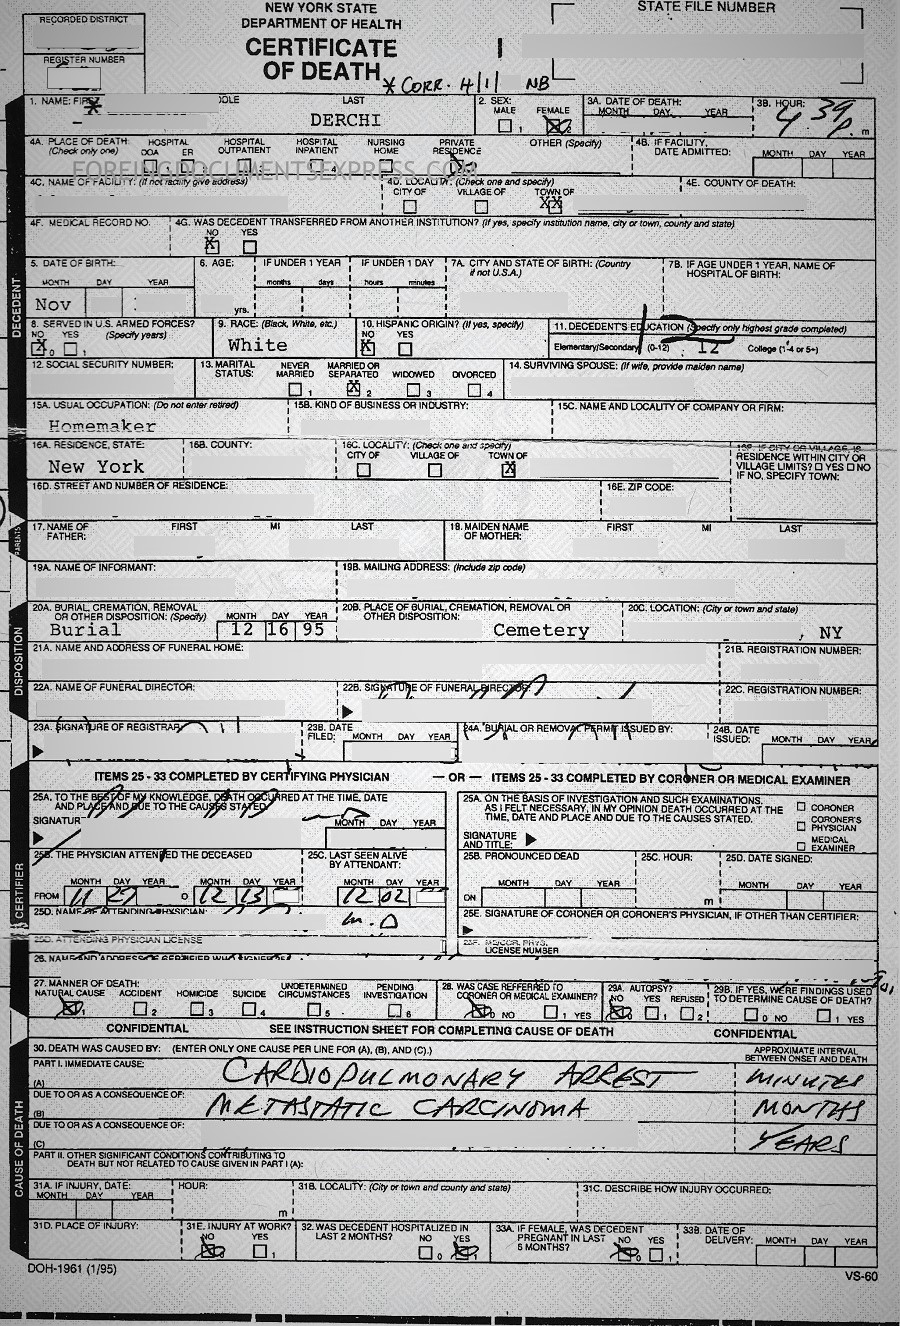 NEW YORK STATE
DEPARTMENT OF HEALTH
CERTIFICATE
OF DEATH
RECORDED DISTRICT
REGISTER NUMBER
STATE FILE NUMBER
* CORR. 4/1/ NB
1. NAME: FIRST LAST
DERCHI
2. SEX: MALE FEMALE
1
3A. DATE OF DEATH:
MONTH DAY YEAR
3B. HOUR:
4 39 p. m
4A. PLACE OF DEATH: (Check only one)
HOSPITAL DOA ER HOSPITAL OUTPATIENT HOSPITAL INPATIENT NURSING HOME PRIVATE RESIDENCE OTHER (Specify)
4B. IF FACILITY, DATE ADMITTED: MONTH DAY YEAR
FOREINGDOCUMENTSEXPRESS.COM
4C. NAME OF FACILITY: (If not facility give address)
4D. LOCALITY: (Check one and specify)
CITY OF VILLAGE OF TOWN OF
XX
4E. COUNTY OF DEATH:
4F. MEDICAL RECORD NO.
4G. WAS DECEDENT TRANSFERRED FROM ANOTHER INSTITUTION? (If yes, specify institution name, city or town, county and state)
NO YES
X
DECEDENT
5. DATE OF BIRTH:
MONTH DAY YEAR
Nov
6. AGE:
yrs.
IF UNDER 1 YEAR months days
IF UNDER 1 DAY hours minutes
7A. CITY AND STATE OF BIRTH: (Country if not U.S.A.)
7B. IF AGE UNDER 1 YEAR, NAME OF HOSPITAL OF BIRTH:
8. SERVED IN U.S. ARMED FORCES?
NO YES (Specify years)
X 0 1
9. RACE: (Black, White, etc.)
White
10. HISPANIC ORIGIN? (If yes, specify)
NO YES
X
11. DECEDENT'S EDUCATION (Specify only highest grade completed)
Elementary/Secondary (0-12) 12 College (1-4 or 5+)
12
12. SOCIAL SECURITY NUMBER:
13. MARITAL STATUS:
NEVER MARRIED 1 MARRIED OR SEPARATED X 2 WIDOWED 3 DIVORCED 4
14. SURVIVING SPOUSE: (If wife, provide maiden name)
15A. USUAL OCCUPATION: (Do not enter retired)
Homemaker
15B. KIND OF BUSINESS OR INDUSTRY:
15C. NAME AND LOCALITY OF COMPANY OR FIRM:
16A. RESIDENCE, STATE:
New York
16B. COUNTY:
16C. LOCALITY: (Check one and specify)
CITY OF VILLAGE OF TOWN OF
X
16F. IF CITY OR VILLAGE, IS RESIDENCE WITHIN CITY OR VILLAGE LIMITS? YES NO
IF NO, SPECIFY TOWN:
16D. STREET AND NUMBER OF RESIDENCE:
16E. ZIP CODE:
PARENTS
17. NAME OF FATHER: FIRST MI LAST
18. MAIDEN NAME OF MOTHER: FIRST MI LAST
19A. NAME OF INFORMANT:
19B. MAILING ADDRESS: (Include zip code)
DISPOSITION
20A. BURIAL, CREMATION, REMOVAL OR OTHER DISPOSITION: (Specify) MONTH DAY YEAR
Burial 12 16 95
20B. PLACE OF BURIAL, CREMATION, REMOVAL OR OTHER DISPOSITION:
Cemetery
20C. LOCATION: (City or town and state)
, NY
21A. NAME AND ADDRESS OF FUNERAL HOME:
21B. REGISTRATION NUMBER:
22A. NAME OF FUNERAL DIRECTOR:
22B. SIGNATURE OF FUNERAL DIRECTOR:
22C. REGISTRATION NUMBER:
23A. SIGNATURE OF REGISTRAR
23B. DATE FILED: MONTH DAY YEAR
24A. BURIAL OR REMOVAL PERMIT ISSUED BY:
24B. DATE ISSUED: MONTH DAY YEAR
ITEMS 25 - 33 COMPLETED BY CERTIFYING PHYSICIAN — OR — ITEMS 25 - 33 COMPLETED BY CORONER OR MEDICAL EXAMINER
CERTIFIER
25A. TO THE BEST OF MY KNOWLEDGE, DEATH OCCURRED AT THE TIME, DATE AND PLACE AND DUE TO THE CAUSES STATED.
SIGNATUR
MONTH DAY YEAR
25A. ON THE BASIS OF INVESTIGATION AND SUCH EXAMINATIONS. AS I FELT NECESSARY, IN MY OPINION DEATH OCCURRED AT THE TIME, DATE AND PLACE AND DUE TO THE CAUSES STATED.
SIGNATURE AND TITLE:
CORONER
CORONER'S PHYSICIAN
MEDICAL EXAMINER
25B. THE PHYSICIAN ATTENDED THE DECEASED
MONTH DAY YEAR MONTH DAY YEAR
FROM 11 27 O 12 13
25C. LAST SEEN ALIVE BY ATTENDANT:
MONTH DAY YEAR
12 02
25B. PRONOUNCED DEAD
MONTH DAY YEAR
ON
25C. HOUR:
m
25D. DATE SIGNED:
MONTH DAY YEAR
25D. NAME OF ATTENDING PHYSICIAN:
M.D
25E. SIGNATURE OF CORONER OR CORONER'S PHYSICIAN, IF OTHER THAN CERTIFIER:
25D. ATTENDING PHYSICIAN LICENSE
LICENSE NUMBER
26. NAME AND ADDRESS OF CERTIFIER WHO SIGNED
27. MANNER OF DEATH:
NATURAL CAUSE 1 ACCIDENT 2 HOMICIDE 3 SUICIDE 4 UNDETERMINED CIRCUMSTANCES 5 PENDING INVESTIGATION 6
28. WAS CASE REFERRED TO CORONER OR MEDICAL EXAMINER?
0 NO 1 YES
29A. AUTOPSY?
NO YES REFUSED
0 1 2
29B. IF YES, WERE FINDINGS USED TO DETERMINE CAUSE OF DEATH?
0 NO 1 YES
CONFIDENTIAL SEE INSTRUCTION SHEET FOR COMPLETING CAUSE OF DEATH CONFIDENTIAL
CAUSE OF DEATH
30. DEATH WAS CAUSED BY: (ENTER ONLY ONE CAUSE PER LINE FOR (A), (B), AND (C).)
APPROXIMATE INTERVAL BETWEEN ONSET AND DEATH
PART I. IMMEDIATE CAUSE:
(A) CARDIOPULMONARY ARREST MINUTES
DUE TO OR AS A CONSEQUENCE OF:
(B) METASTATIC CARCINOMA MONTHS
DUE TO OR AS A CONSEQUENCE OF:
(C) YEARS
PART II. OTHER SIGNIFICANT CONDITIONS CONTRIBUTING TO DEATH BUT NOT RELATED TO CAUSE GIVEN IN PART I (A):
31A. IF INJURY, DATE: MONTH DAY YEAR
HOUR: m
31B. LOCALITY: (City or town and county and state)
31C. DESCRIBE HOW INJURY OCCURRED:
31D. PLACE OF INJURY:
31E. INJURY AT WORK?
NO YES
0 1
32. WAS DECEDENT HOSPITALIZED IN LAST 2 MONTHS?
NO YES
0 1
33A. IF FEMALE, WAS DECEDENT PREGNANT IN LAST 6 MONTHS?
NO YES
0 1
33B. DATE OF DELIVERY: MONTH DAY YEAR
DOH-1961 (1/95)
VS-60